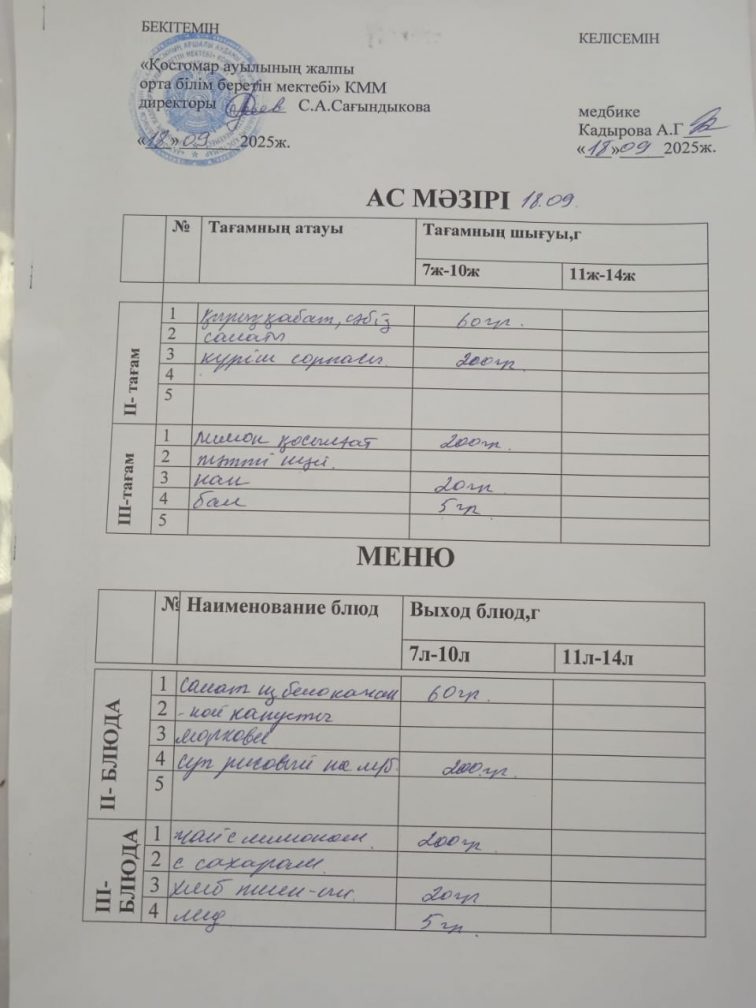 БЕКІТЕМІН
КЕЛІСЕМІН
«Қостомар ауылының жалпы
орта білім беретін мектебі» КММ
директоры С.А.Сағындыкова
медбике
Кадырова А.Г
«18» 09 2025ж.
«18» 09 2025ж.
АС МӘЗІРІ 18.09.
№ Тағамның атауы Тағамның шығуы,г
7ж-10ж 11ж-14ж
ІІ- тағам
1 қырыққабат, сәбіз 60гр.
2 салаты
3 күріш сорпасы 200гр.
4
5
ІІІ-тағам
1 лимон қосылғат 200гр.
2 тәтті шәй.
3 нан 20гр
4 бал 5гр.
5
МЕНЮ
№ Наименование блюд Выход блюд,г
7л-10л 11л-14л
ІІ- БЛЮДА
1 салат из белокачан 60гр.
2 -ной капусты
3 моркови
4 суп рисовый на м/б. 200гр.
5
ІІІ- БЛЮДА
1 чай с лимоном. 200гр.
2 с сахаром.
3 хлеб пшен-ый. 20гр
4 мед. 5гр.